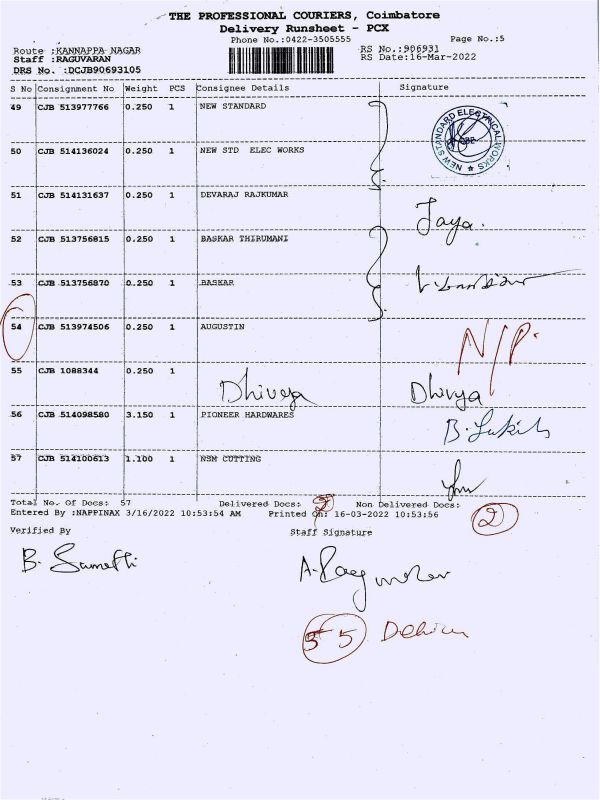 THE PROFESSIONAL COURIERS, Coimbatore
Delivery Runsheet - PCX
Phone No.:0422-3505555 Page No.:5
Route :KANNAPPA NAGAR RS No.:906931
Staff :RAGUVARAN RS Date:16-Mar-2022
DRS No. :DCJB90693105
S No Consignment No Weight PCS Consignee Details Signature
49 CJB 513977766 0.250 1 NEW STANDARD
NEW STANDARD ELECTRICAL WORKS
50 CJB 514136024 0.250 1 NEW STD ELEC WORKS
51 CJB 514131637 0.250 1 DEVARAJ RAJKUMAR Jaya.
52 CJB 513756815 0.250 1 BASKAR THIRUMANI
53 CJB 513756870 0.250 1 BASKAR
54 CJB 513974506 0.250 1 AUGUSTIN N/P.
55 CJB 1088344 0.250 1 Dhivya Dhivya
56 CJB 514098580 3.150 1 PIONEER HARDWARES
57 CJB 514100613 1.100 1 NSM CUTTING
Total No. Of Docs: 57 Delivered Docs: Non Delivered Docs: 2
Entered By :NAPPINAX 3/16/2022 10:53:54 AM Printed On: 16-03-2022 10:53:56
Verified By Staff Signature
55